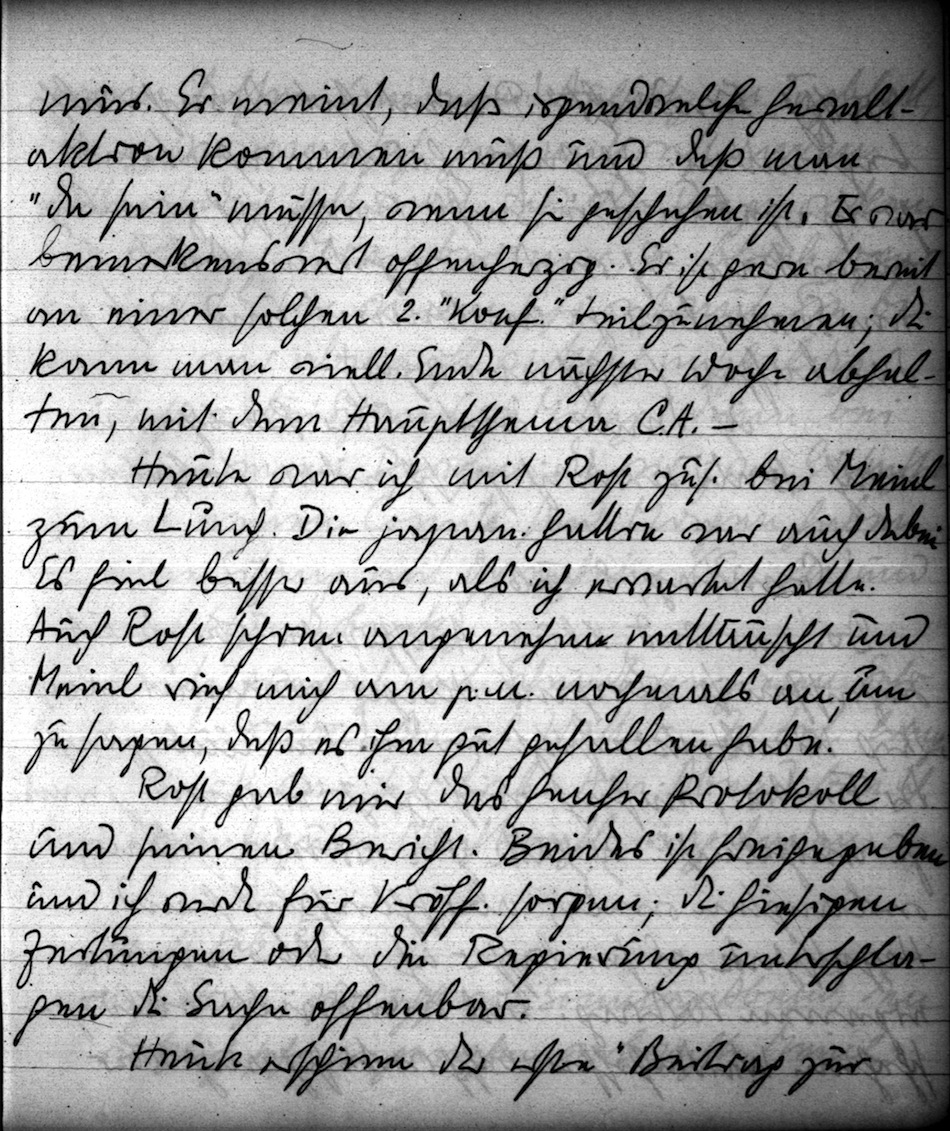 aus. Er meint, daß irgendwelche Gewalt-
aktion kommen muß und daß man
"da sein" müsse, wenn sie geschehen ist. Er war
bemerkenswert offenherzig. Er ist gern bereit
an einer solchen 2. "Konf." teilzunehmen; die
kann man viell. Ende nächster Woche abhal-
ten, mit dem Hauptthema C.A. –
Heute war ich mit Rost zus. bei Meinl
zum Lunch. Die japan. Gattin war auch dabei
Es fiel besser aus, als ich erwartet hatte.
Auch Rost schien angenehm enttäuscht und
Meinl rief mich am p.m. nochmals an, um
zu sagen, daß es ihm gut gefallen habe.
Rost gab mir das Genfer Protokoll
und seinen Bericht. Beides ist freigegeben
und ich werde für Veröff. sorgen; die hiesigen
Zeitungen oder die Regierung unterschla-
gen die Sache offenbar.
Heute erschien der erste "Beitrag zur